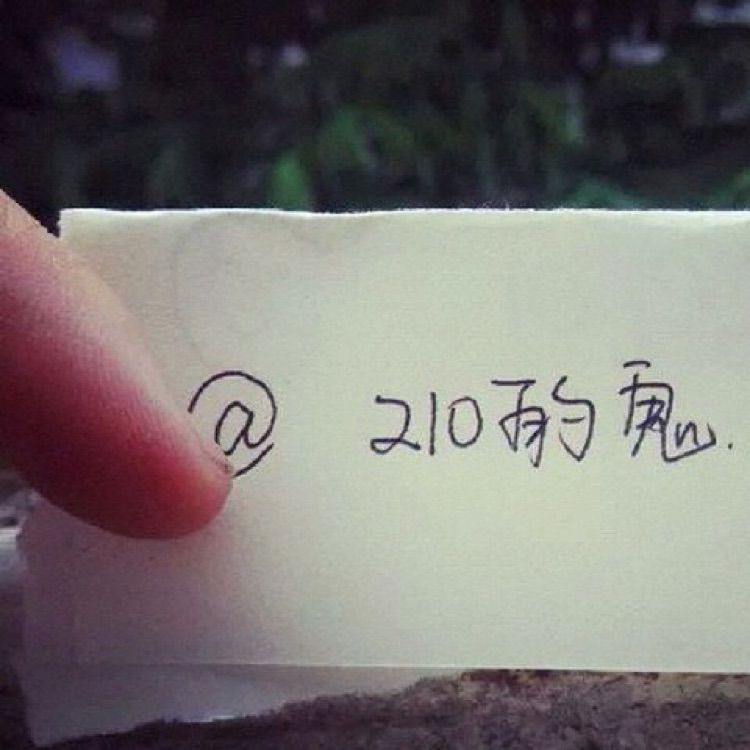 @ 210的鬼.